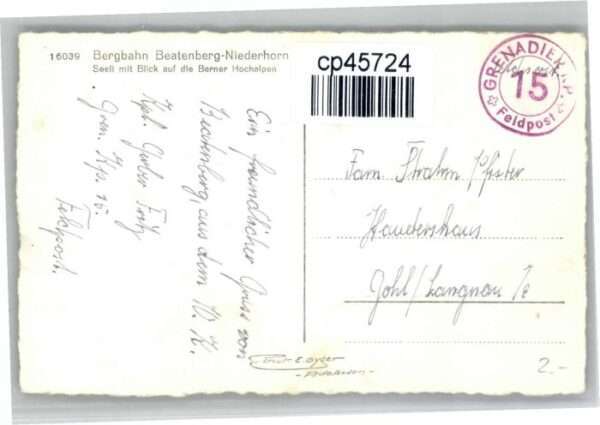 16039 Bergbahn Beatenberg-Niederhorn
Seeli mit Blick auf die Berner Hochalpen
cp45724
GRENADIER KP.
15
Feldpost
Ein freundlicher Gruss von
Beatenberg, aus dem W. K.
Kpl. Gerber Fritz
Gren. Kp. 15.
Feldpost.
Fam.
Gohl/Langnau i/E
2.-